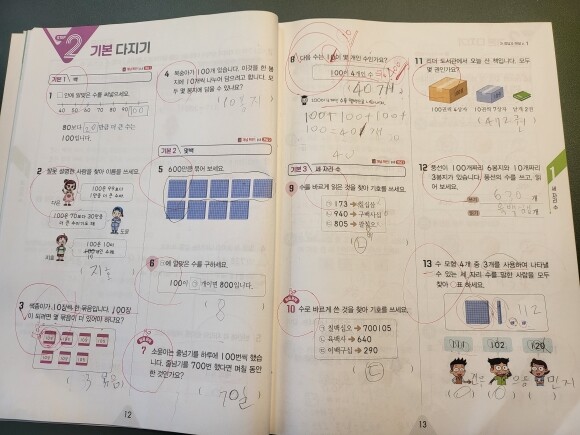 STEP 2 기본 다지기
기본 1 백
1 □안에 알맞은 수를 써넣으세요.
40 50 60 70 80 90 100
80보다 20만큼 더 큰 수는
100입니다.
2 잘못 설명한 사람을 찾아 이름을 쓰세요.
100은 99보다
1만큼 더 큰 수야.
다은
100은 70보다 30만큼
더 큰 수이기도 해.
도윤
100은 10이
100개인 수야.
지호
( 지호 )
3 색종이가 10장씩 한 묶음입니다. 100장
이 되려면 몇 묶음이 더 있어야 하나요?
( 3 묶음 )
4 복숭아가 100개 있습니다. 이것을 한 봉
지에 10개씩 나누어 담으려고 합니다. 모
두 몇 봉지에 담을 수 있나요?
( 10봉지 )
기본 2 몇백
5 600만큼 묶어 보세요.
6 ㉠에 알맞은 수를 구하세요.
100이 ㉠개이면 800입니다.
( 8 )
7 소율이는 줄넘기를 하루에 100번씩 했습
니다. 줄넘기를 700번 했다면 며칠 동안
한 것인가요?
( 7일 )
12
8 다음 수는 10이 몇 개인 수인가요?
100이 4개인 수
( 40개 )
100+100+100+
100=40 개
40
기본 3 세 자리 수
9 수를 바르게 읽은 것을 찾아 기호를 쓰세요.
㉠ 173 ➔ 칠십삼
㉡ 940 ➔ 구백사십
㉢ 805 ➔ 팔십오
( ㉡ )
10 수로 바르게 쓴 것을 찾아 기호를 쓰세요.
㉠ 칠백십오 ➔ 700105
㉡ 육백사 ➔ 640
㉢ 이백구십 ➔ 290
( ㉢ )
11 리아 도서관에서 오늘 산 책입니다. 모두
몇 권인가요?
100권씩 4상자 10권씩 7상자 낱개 2권
12 풍선이 100개짜리 6봉지와 10개짜리
3봉지가 있습니다. 풍선의 수를 쓰고, 읽
어 보세요.
쓰기 630 개
읽기 개
13 수 모형 4개 중 3개를 사용하여 나타낼
수 있는 세 자리 수를 말한 사람을 모두
찾아 ○표 하세요.
112
111 102 120
민지
1 세 자리 수
13